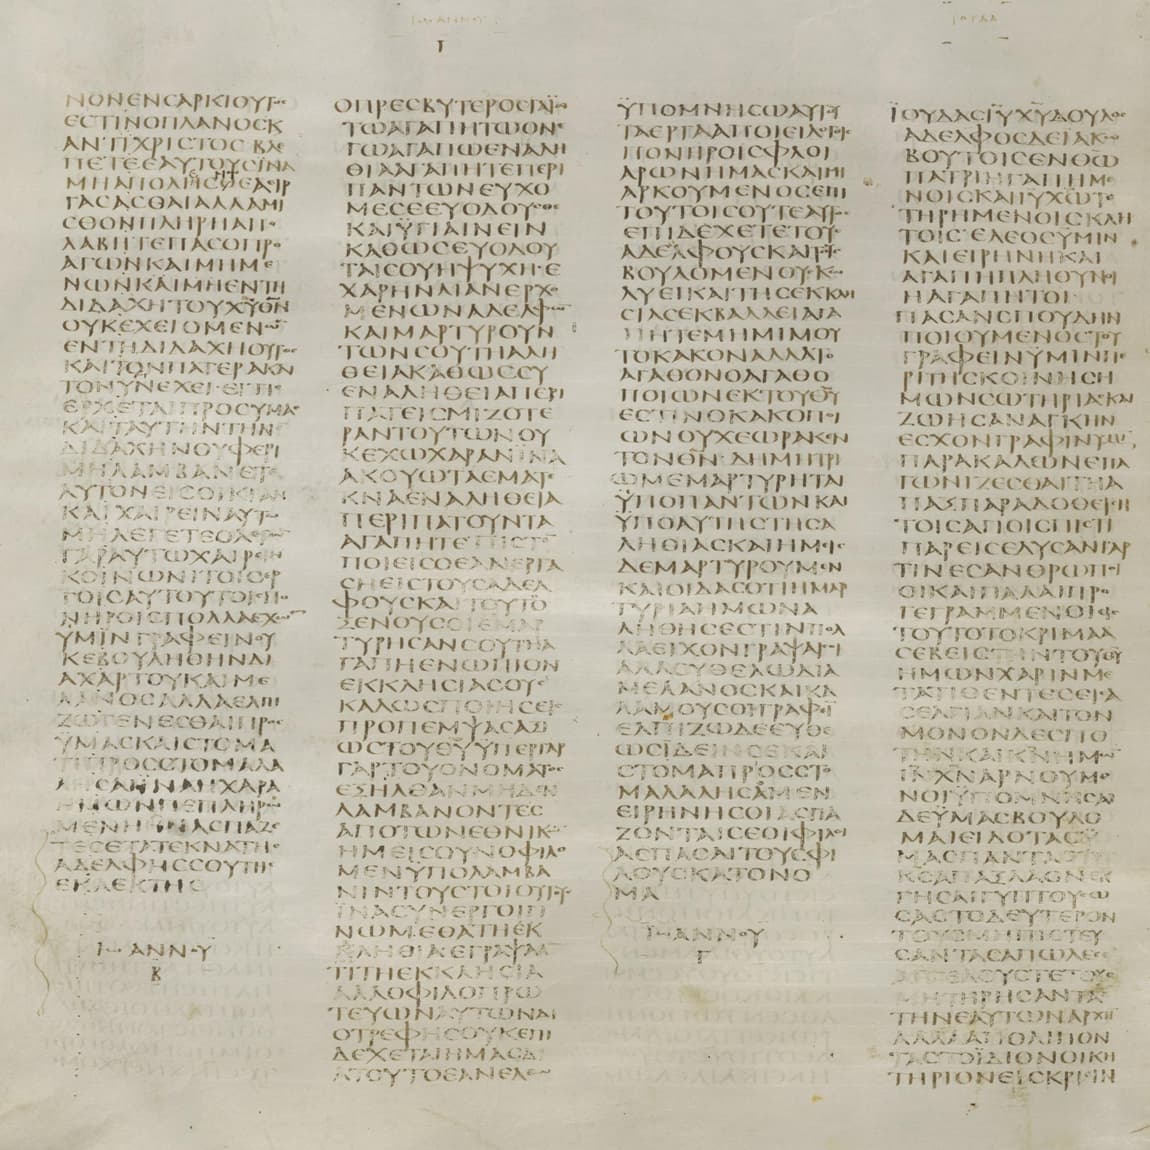 ΙΩΑΝΝΟΥ
Γ
ΙΟΥΔΑ
ΝΟΝΕΝΣΑΡΚΙΟΥΤΟ
ΕΣΤΙΝΟΠΛΑΝΟΣΚ
ΑΝΤΙΧΡΙΣΤΟΣΒΛΕ
ΠΕΤΕΕΑΥΤΟΥΣΙΝΑ
ΜΗΑΠΟΛΗΣΘΕΑΗΡ
ΓΑΣΑΣΘΑΙΑΛΛΑΜΙ
ΣΘΟΝΠΛΗΡΗΑΠΟ
ΛΑΒΗΤΕΠΑΣΟΠΡΟ
ΑΓΩΝΚΑΙΜΗΜΕ
ΝΩΝΚΑΙΜΗΕΝΤΗ
ΔΙΔΑΧΗΤΟΥΧΥΘΝ
ΟΥΚΕΧΕΙΟΜΕΝΩ
ΕΝΤΗΔΙΔΑΧΗΟΥΤΟ
ΚΑΙΤΟΝΠΑΤΕΡΑΚΑΙ
ΤΟΝΥΝΕΧΕΙ·ΕΙΤΙ
ΕΡΧΕΤΑΙΠΡΟΣΥΜΑ
ΚΑΙΤΑΥΤΗΝΤΗΝ
ΔΙΔΑΧΗΝΟΥΦΕΡΙ
ΜΗΛΑΜΒΑΝΕΤΕ
ΑΥΤΟΝΕΙΣΟΙΚΙΑΝ
ΚΑΙΧΑΙΡΕΙΝΑΥΤΩ
ΜΗΛΕΓΕΤΕΟΛΕΓΩ
ΓΑΡΑΥΤΩΧΑΙΡΕΙΝ
ΚΟΙΝΩΝΙΤΟΙΣΕΡ
ΓΟΙΣΑΥΤΟΥΤΟΙΠΟ
ΝΗΡΟΙΣΠΟΛΛΑΕΧΩ
ΥΜΙΝΓΡΑΦΕΙΝΟΥ
ΚΕΒΟΥΛΗΘΗΝΔΙ
ΑΧΑΡΤΟΥΚΑΙΜΕ
ΛΑΝΟΣΑΛΛΑΕΛΠΙ
ΖΩΓΕΝΕΣΘΑΙΠΡΟ
ΫΜΑΣΚΑΙΣΤΟΜΑ
ΤΙΠΡΟΣΣΤΟΜΑΛΑ
ΛΗΣΑΙΙΝΑΗΧΑΡΑ
ΗΜΩΝΗΠΕΠΛΗΡΩ
ΜΕΝΗΗΝΑΣΠΑΖΕ
ΤΕΣΕΤΑΤΕΚΝΑΤΗΣ
ΑΔΕΛΦΗΣΣΟΥΤΗΣ
ΕΚΛΕΚΤΗΣ
ΙΩΑΝΝΟΥ
Β
ΟΠΡΕΣΒΥΤΕΡΟΣΓΑΪΩ
ΤΩΑΓΑΠΗΤΩΟΝΕ
ΓΩΑΓΑΠΩΕΝΑΛΗ
ΘΙΑΑΓΑΠΗΤΕΠΕΡΙ
ΠΑΝΤΩΝΕΥΧΟ
ΜΕΣΕΕΥΟΔΟΥΣΘΕ
ΚΑΙΫΓΙΑΙΝΕΙΝ
ΚΑΘΩΣΕΥΟΔΟΥ
ΤΑΙΣΟΥΗΨΥΧΗ·Ε
ΧΑΡΗΝΛΙΑΝΕΡΧΟ
ΜΕΝΩΝΑΔΕΛΦΩ
ΚΑΙΜΑΡΤΥΡΟΥΝ
ΤΩΝΣΟΥΤΗΑΛΗ
ΘΕΙΑΚΑΘΩΣΣΥ
ΕΝΑΛΗΘΕΙΑΠΕΡΙ
ΠΑΤΕΙΣΜΙΖΟΤΕ
ΡΑΝΤΟΥΤΩΝΟΥ
ΚΕΧΩΧΑΡΑΝΙΝΑ
ΑΚΟΥΩΤΑΕΜΑΤΕ
ΚΝΑΕΝΑΛΗΘΕΙΑ
ΠΕΡΙΠΑΤΟΥΝΤΑ
ΑΓΑΠΗΤΕΠΙΣΤΟ
ΠΟΙΕΙΣΟΕΑΝΕΡΓΑ
ΣΗΕΙΣΤΟΥΣΑΔΕΛ
ΦΟΥΣΚΑΙΤΟΥΤΟ
ΞΕΝΟΥΣΟΙΕΜΑΡ
ΤΥΡΗΣΑΝΣΟΥΤΗΑ
ΓΑΠΗΕΝΩΠΙΟΝ
ΕΚΚΛΗΣΙΑΣΟΥΣ
ΚΑΛΩΣΠΟΙΗΣΕΙΣ
ΠΡΟΠΕΜΨΑΣΑΞΙ
ΩΣΤΟΥΘΥΫΠΕΡΤΟΥ
ΓΑΡΤΟΥΟΝΟΜΑΤΟ
ΕΞΗΛΘΑΝΜΗΔΕΝ
ΛΑΜΒΑΝΟΝΤΕΣ
ΑΠΟΤΩΝΕΘΝΙΚΩ
ΗΜΕΙΣΟΥΝΟΦΙΛΟ
ΜΕΝΫΠΟΛΑΜΒΑ
ΝΙΝΤΟΥΣΤΟΙΟΥΤΟΥ
ΙΝΑΣΥΝΕΡΓΟΙΓΙ
ΝΩΜΕΘΑΤΗΕΚ
ΚΛΗΘΙΑΕΓΡΑΨΑΑ
ΤΙΤΗΕΚΚΛΗΣΙΑ
ΑΛΛΟΦΙΛΟΠΡΩ
ΤΕΥΩΝΑΥΤΩΝΔΙ
ΟΤΡΕΦΗΣΟΥΚΕΠΙ
ΔΕΧΕΤΑΙΗΜΑΣΔΙ
ΑΤΟΥΤΟΕΑΝΕΛΘΩ
ΫΠΟΜΝΗΣΩΑΥΤΟΥ
ΤΑΕΡΓΑΑΠΟΙΕΙΛΟΓΟΙΣ
ΠΟΝΗΡΟΙΣΦΛΟΙ
ΑΡΩΝΗΜΑΣΚΑΙΜΗ
ΑΡΚΟΥΜΕΝΟΣΕΠΙ
ΤΟΥΤΟΙΣΟΥΤΕΑΥΤΟΣ
ΕΠΙΔΕΧΕΤΕΤΟΥΣ
ΑΔΕΛΦΟΥΣΚΑΙΤΟΥΣ
ΒΟΥΛΟΜΕΝΟΥΣΚΩ
ΛΥΕΙΚΑΙΤΗΣΕΚΚΛΗ
ΣΙΑΣΕΚΒΑΛΛΕΙΑΓΑ
ΠΗΤΕΜΗΜΙΜΟΥ
ΤΟΚΑΚΟΝΑΛΛΑΤΟ
ΑΓΑΘΟΝΟΑΓΑΘΟ
ΠΟΙΩΝΕΚΤΟΥΘΥ
ΕΣΤΙΝΟΚΑΚΟΠΟΙ
ΩΝΟΥΧΕΩΡΑΚΕΝ
ΤΟΝΘΝ·ΔΗΜΗΤΡΙ
ΩΜΕΜΑΡΤΥΡΗΤΑΙ
ΫΠΟΠΑΝΤΩΝΚΑΙ
ΫΠΟΑΥΤΗΣΤΗΣΑ
ΛΗΘΙΑΣΚΑΙΗΜΕΙΣ
ΔΕΜΑΡΤΥΡΟΥΜΕΝ
ΚΑΙΟΙΔΑΣΟΤΙΗΜΑΡ
ΤΥΡΙΑΗΜΩΝΑ
ΛΗΘΗΣΕΣΤΙΝΠΟΛ
ΛΑΕΙΧΟΝΓΡΑΨΑΙΣΟΙ
ΑΛΛΟΥΘΕΛΩΔΙΑ
ΜΕΛΑΝΟΣΚΑΙΚΑ
ΛΑΜΟΥΣΟΙΓΡΑΦΙ
ΕΛΠΙΖΩΔΕΕΥΘΕ
ΩΣΪΔΕΙΝΣΕΚΑΙ
ΣΤΟΜΑΠΡΟΣΣΤΟ
ΜΑΛΑΛΗΣΟΜΕΝ
ΕΙΡΗΝΗΣΟΙΑΣΠΑ
ΖΟΝΤΑΙΣΕΟΙΦΙΛΟΙ
ΑΣΠΑΣΑΙΤΟΥΣΦΙ
ΛΟΥΣΚΑΤΟΝΟ
ΜΑ
ΙΩΑΝΝΟΥ
Γ
ΪΟΥΔΑΣΙΥΧΥΔΟΥΛΟΣ
ΑΔΕΛΦΟΣΔΕΙΑΚΩ
ΒΟΥΤΟΙΣΕΝΘΩ
ΠΑΤΡΙΗΓΑΠΗΜΕ
ΝΟΙΣΚΑΙΙΥΧΩΤΕ
ΤΗΡΗΜΕΝΟΙΣΚΛΗ
ΤΟΙΣ·ΕΛΕΟΣΥΜΙΝ
ΚΑΙΕΙΡΗΝΗΚΑΙ
ΑΓΑΠΗΠΛΗΘΥΝΘΙ
Η ΑΓΑΠΗΤΟΙ
ΠΑΣΑΝΣΠΟΥΔΗΝ
ΠΟΙΟΥΜΕΝΟΣΤΟΥ
ΓΡΑΦΕΙΝΥΜΙΝΠΕ
ΡΙΤΗΣΚΟΙΝΗΣΗ
ΜΩΝΣΩΤΗΡΙΑΣΚΑΙ
ΖΩΗΣΑΝΑΓΚΗΝ
ΕΣΧΟΝΓΡΑΦΙΝΥΜΙ
ΠΑΡΑΚΑΛΩΝΕΠΑ
ΓΩΝΙΖΕΣΘΑΙΤΗΑ
ΠΑΞΠΑΡΑΔΟΘΕΙΣΗ
ΤΟΙΣΑΓΙΟΙΣΠΙΣΤΙ
ΠΑΡΕΙΣΕΔΥΣΑΝΓΑΡ
ΤΙΝΕΣΑΝΘΡΩΠΟΙ
ΟΙΚΑΙΠΑΛΑΙΠΡΟ
ΓΕΓΡΑΜΜΕΝΟΙΕΙΣ
ΤΟΥΤΟΤΟΚΡΙΜΑΑ
ΣΕΒΕΙΣΤΗΝΤΟΥΘΥ
ΗΜΩΝΧΑΡΙΝΜΕ
ΤΑΤΙΘΕΝΤΕΣΕΙΣΑ
ΣΕΛΓΙΑΝΚΑΙΤΟΝ
ΜΟΝΟΝΔΕΣΠΟ
ΤΗΝΚΑΙΚΝΗΜΩ
ΙΝΧΝΑΡΝΟΥΜΕ
ΝΟΙΫΠΟΜΝΗΣΑΙ
ΔΕΥΜΑΣΒΟΥΛΟ
ΜΑΙΕΙΔΟΤΑΣΫ
ΜΑΣΠΑΝΤΑΟΤΙ
ΚΣΑΠΑΞΛΑΟΝΕΚ
ΓΗΣΑΙΓΥΠΤΟΥΣΩ
ΣΑΣΤΟΔΕΥΤΕΡΟΝ
ΤΟΥΣΜΗΠΙΣΤΕΥ
ΣΑΝΤΑΣΑΠΩΛΕΣΕ
ΑΓΓΕΛΟΥΣΤΕΤΟΥΣ
ΜΗΤΗΡΗΣΑΝΤΑΣ
ΤΗΝΕΑΥΤΩΝΑΡΧΗ
ΑΛΛΑΑΠΟΛΙΠΟΝ
ΤΑΣΤΟΪΔΙΟΝΟΙΚΗ
ΤΗΡΙΟΝΕΙΣΚΡΙΣΙΝ